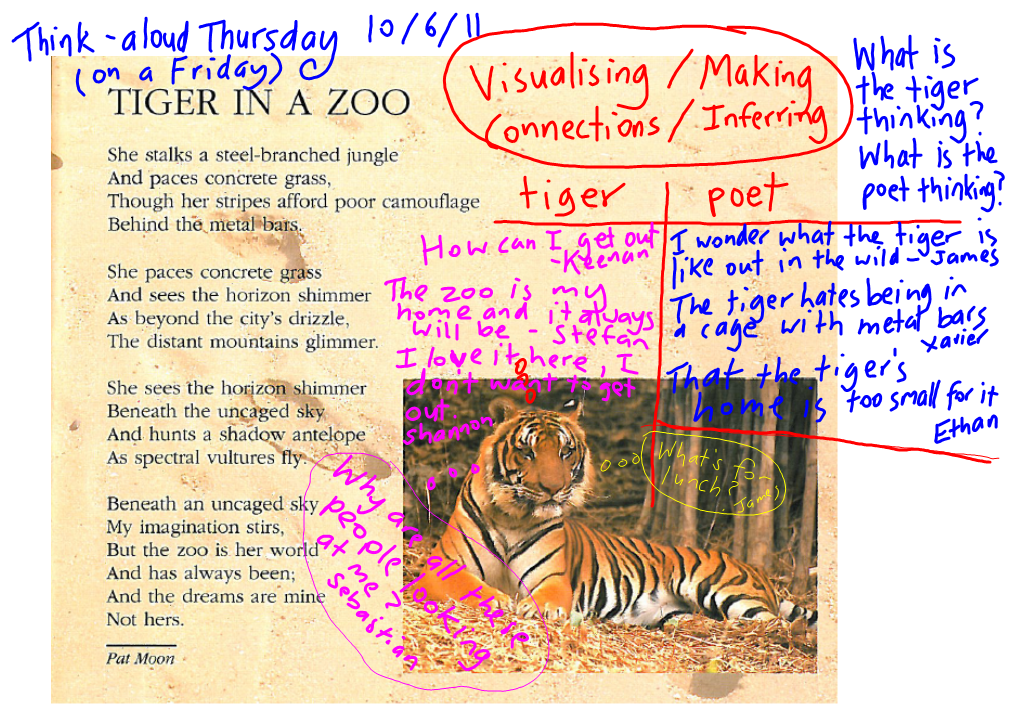 Think-aloud Thursday 10/6/11
(on a Friday)
TIGER IN A ZOO
She stalks a steel-branched jungle
And paces concrete grass,
Though her stripes afford poor camouflage
Behind the metal bars.
She paces concrete grass
And sees the horizon shimmer
As beyond the city's drizzle,
The distant mountains glimmer.
She sees the horizon shimmer
Beneath the uncaged sky
And hunts a shadow antelope
As spectral vultures fly.
Beneath an uncaged sky
My imagination stirs,
But the zoo is her world
And has always been;
And the dreams are mine
Not hers.
Pat Moon
Visualising / Making
Connections / Inferring
What is
the tiger
thinking?
What is the
poet thinking?
tiger
How can I get out
-Keenan
The zoo is my
home and it always
will be - Stefan
I love it here, I
don't want to get
out
shamon
poet
I wonder what the tiger is
like out in the wild - James
The tiger hates being in
a cage with metal bars
xavier
That the tiger's
home is too small for it
Ethan
What's for
lunch?
. James
Why are all these
people looking
at me?
Sebastian